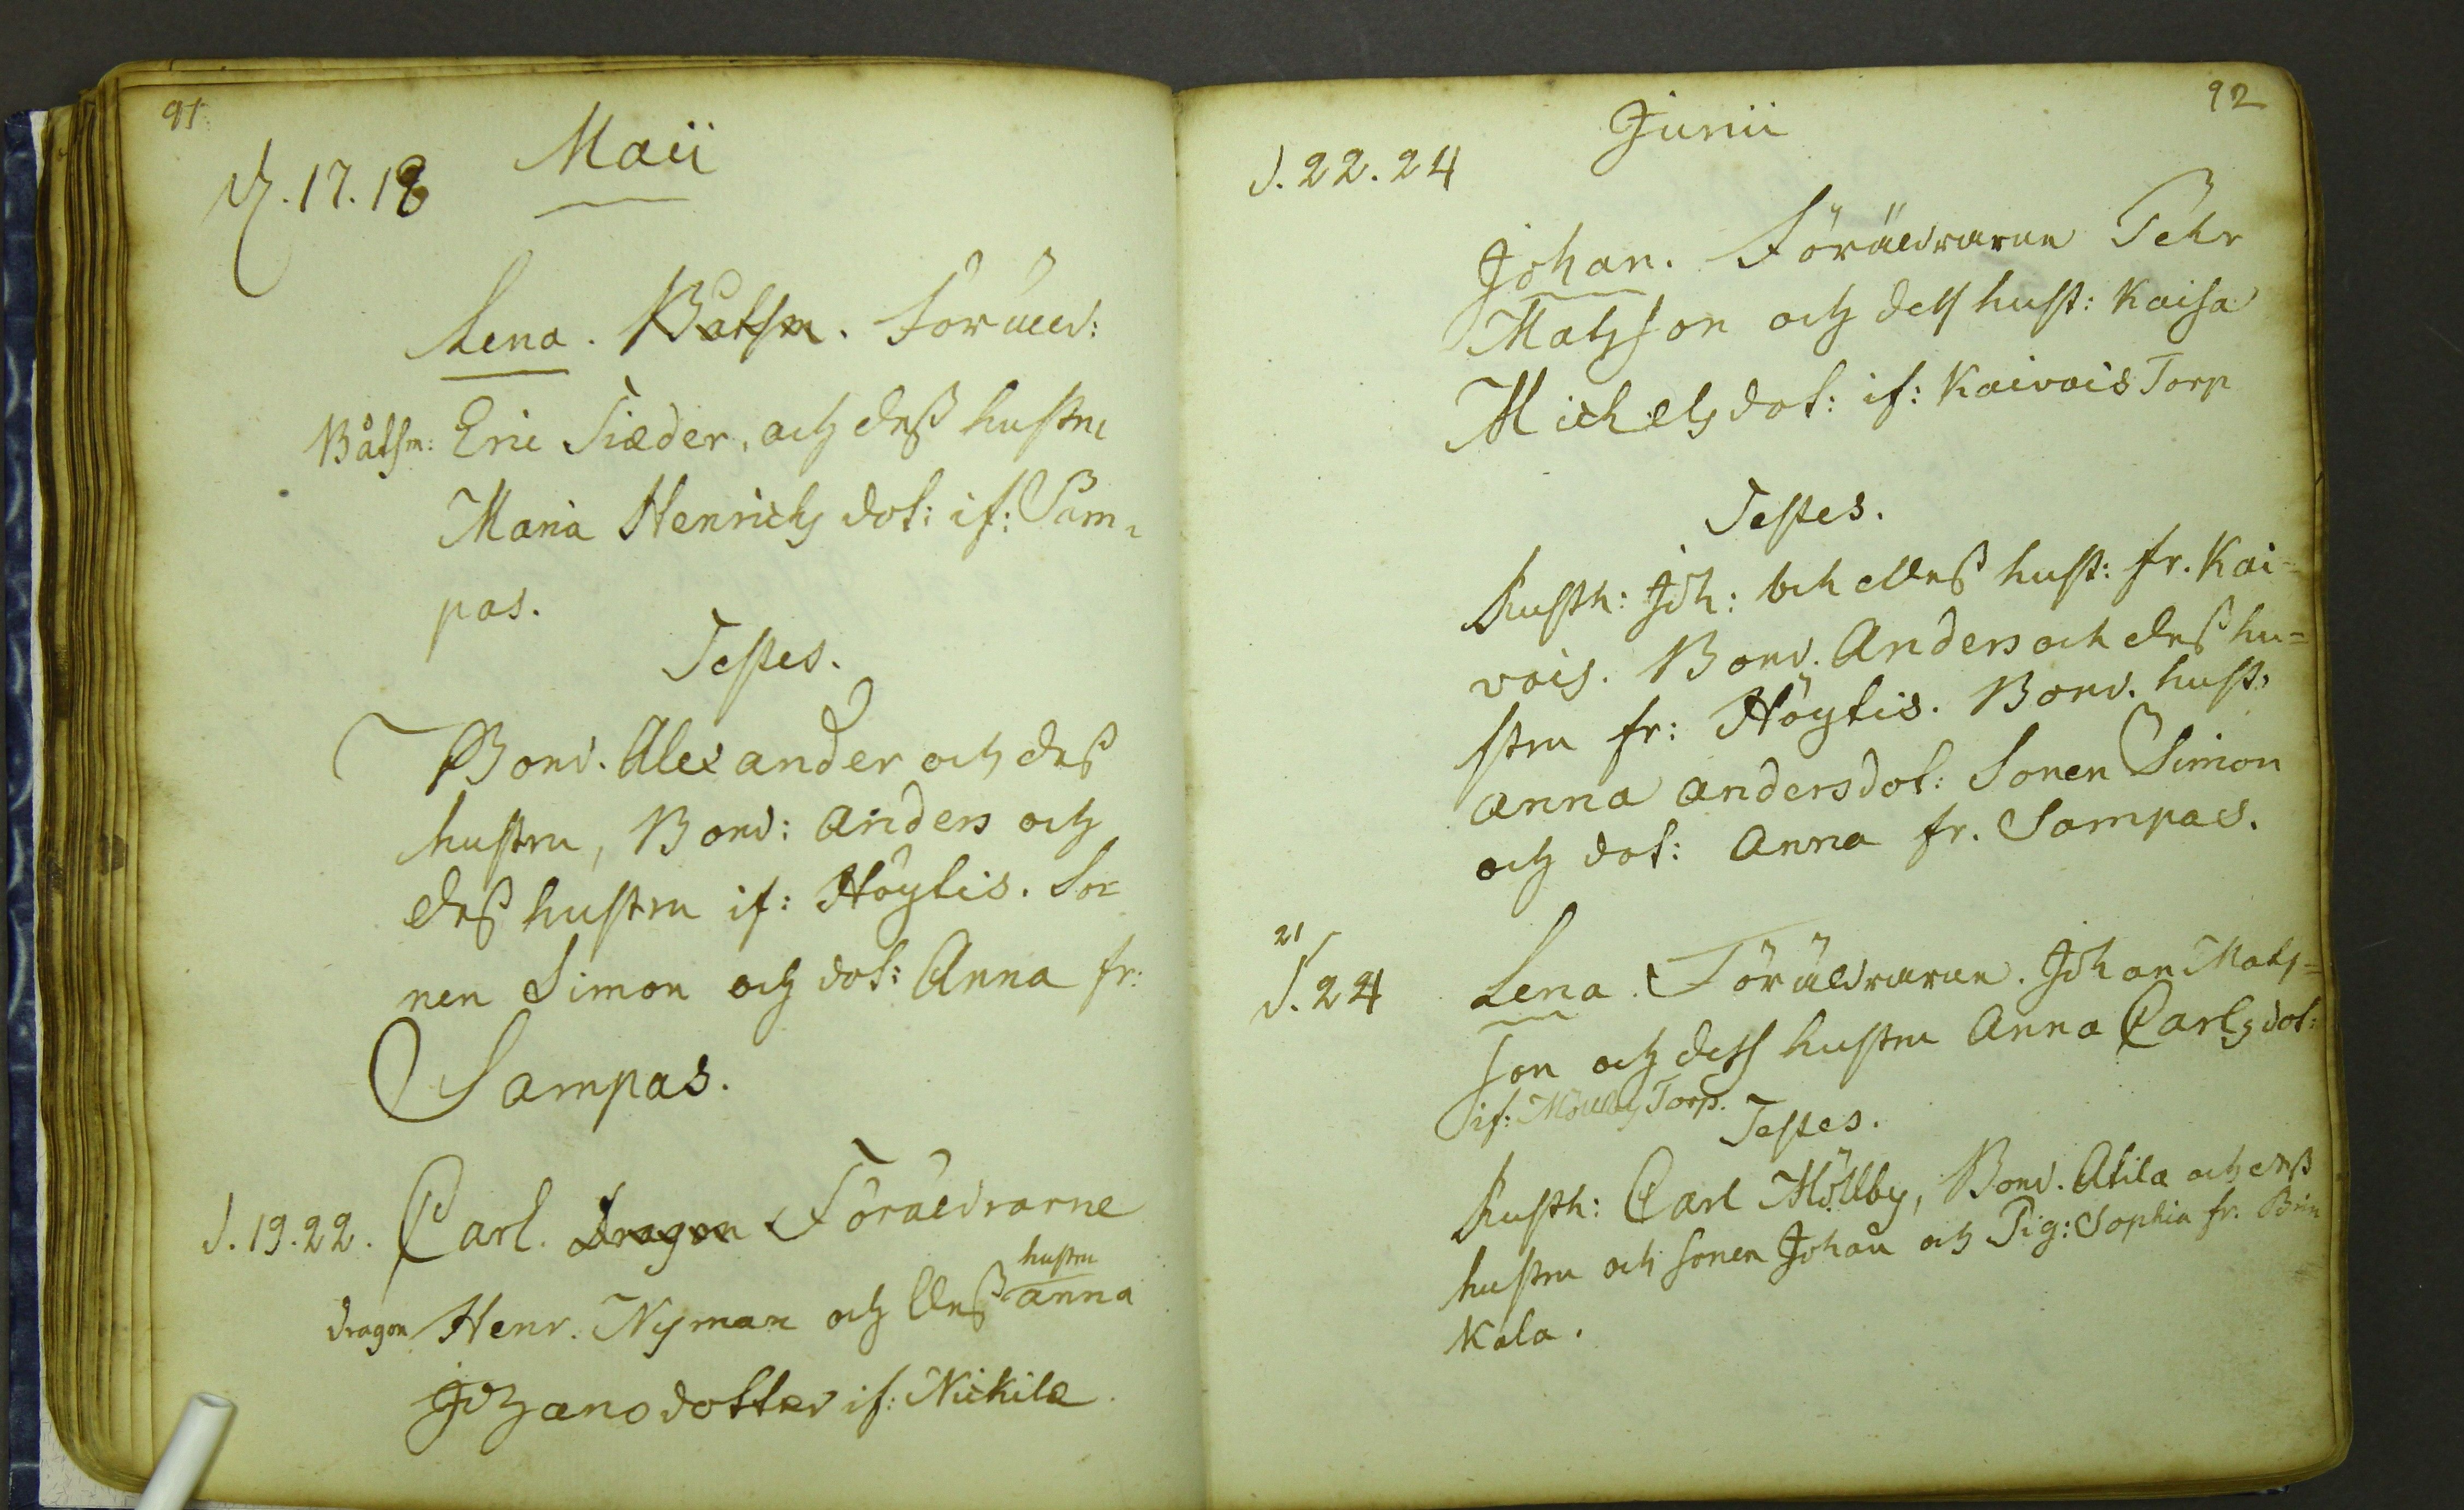 91.
Maii
d. 17. 18
Lena. Båtsm. Föräld:
Båtsm: Eric Siæder, och dess hustru
Maria Henrichs dot: if: Sam-
pas.
Testes.
Bond. Alexander och dess
hustru, Bond: Anders och
dess hustru if: Höytis. So-
nen Simon och dot: Anna fr:
Sampas.
d. 19. 22. Carl. Dragon Föräldrarne
hustru
dragon Henr. Nyman och dess anna
Johansdotter if: Nickilæ
92
Junii
d. 22. 24
Johan. Föräldrarne Pehr
Matsson och dess hust: Kaisa
Michelsdot: if: Kaivois Torp
Testes.
Rusth: Joh: och dess hust: fr. Kai-
vois. Bond. Anders och dess hu-
stru fr: Höytis. Bond. hust:
Anna Andersdot: Sonen Simon
och dot: Anna fr. Sampas.
21
d. 24 Lena. Föräldrarne. Johan Mats-
son och dess hustru Anna Carlsdot:
if: Möllby Torp.
Testes.
Rusth: Carl Möllby, Bond. Atila och dess
hustru och sonen Johan och Pig: Sophia fr. Brin
Kala.